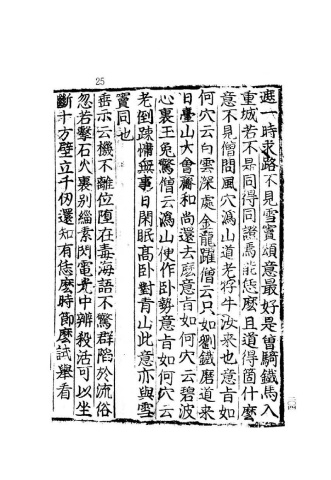 25
逛一時求路不見雪竇頌意最好是曾騎鐵馬入
重城若不是同得同證焉能恁麽且道得箇什麽
意不見僧問風穴溈山道老牸牛汝來也意旨如
何穴云白雲深處金龍躍僧云只如劉鐵磨道來
日臺山大會齋和尚還去麽意旨如何穴云碧波
心裏玉兔驚僧云溈山便作卧勢意旨如何穴云
老倒踈慵無事日閑眠高卧對青山此意亦與雪
竇同也
垂示云機不離位墮在毒海語不驚群陷於流俗
忽若擊石火裏别緇素閃電光中辨殺活可以坐
斷十方壁立千仞還知有恁麽時節麽試舉看